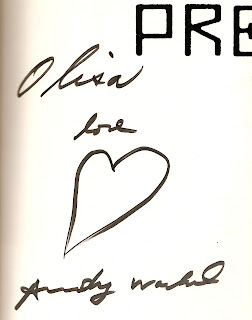 PRE
Olisa
love
Andy Warhol